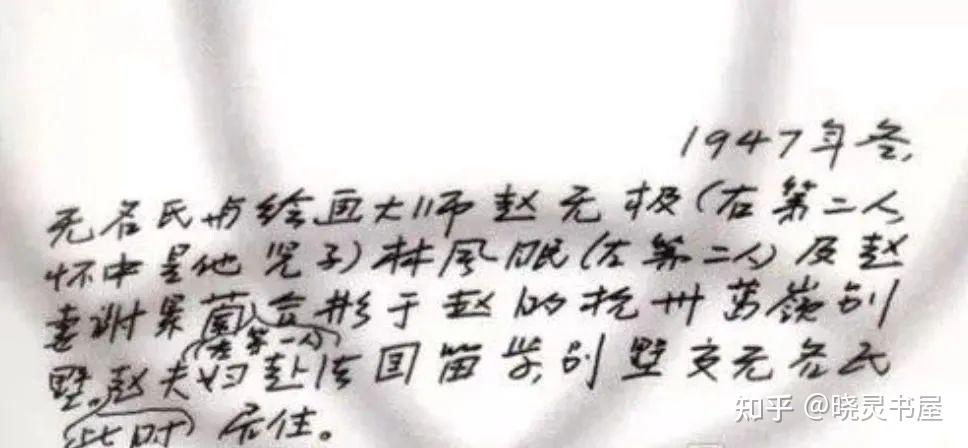 1947年冬,
无名氏与绘画大师赵无极(右第二人,
怀中是他儿子)林风眠(左第二人)及赵
妻谢景蘭合影于赵的杭州葛嶺别
(左第一人)
墅。赵夫妇赴法国留学,别墅交无名氏
此时 居住。
知乎 @晓灵书屋